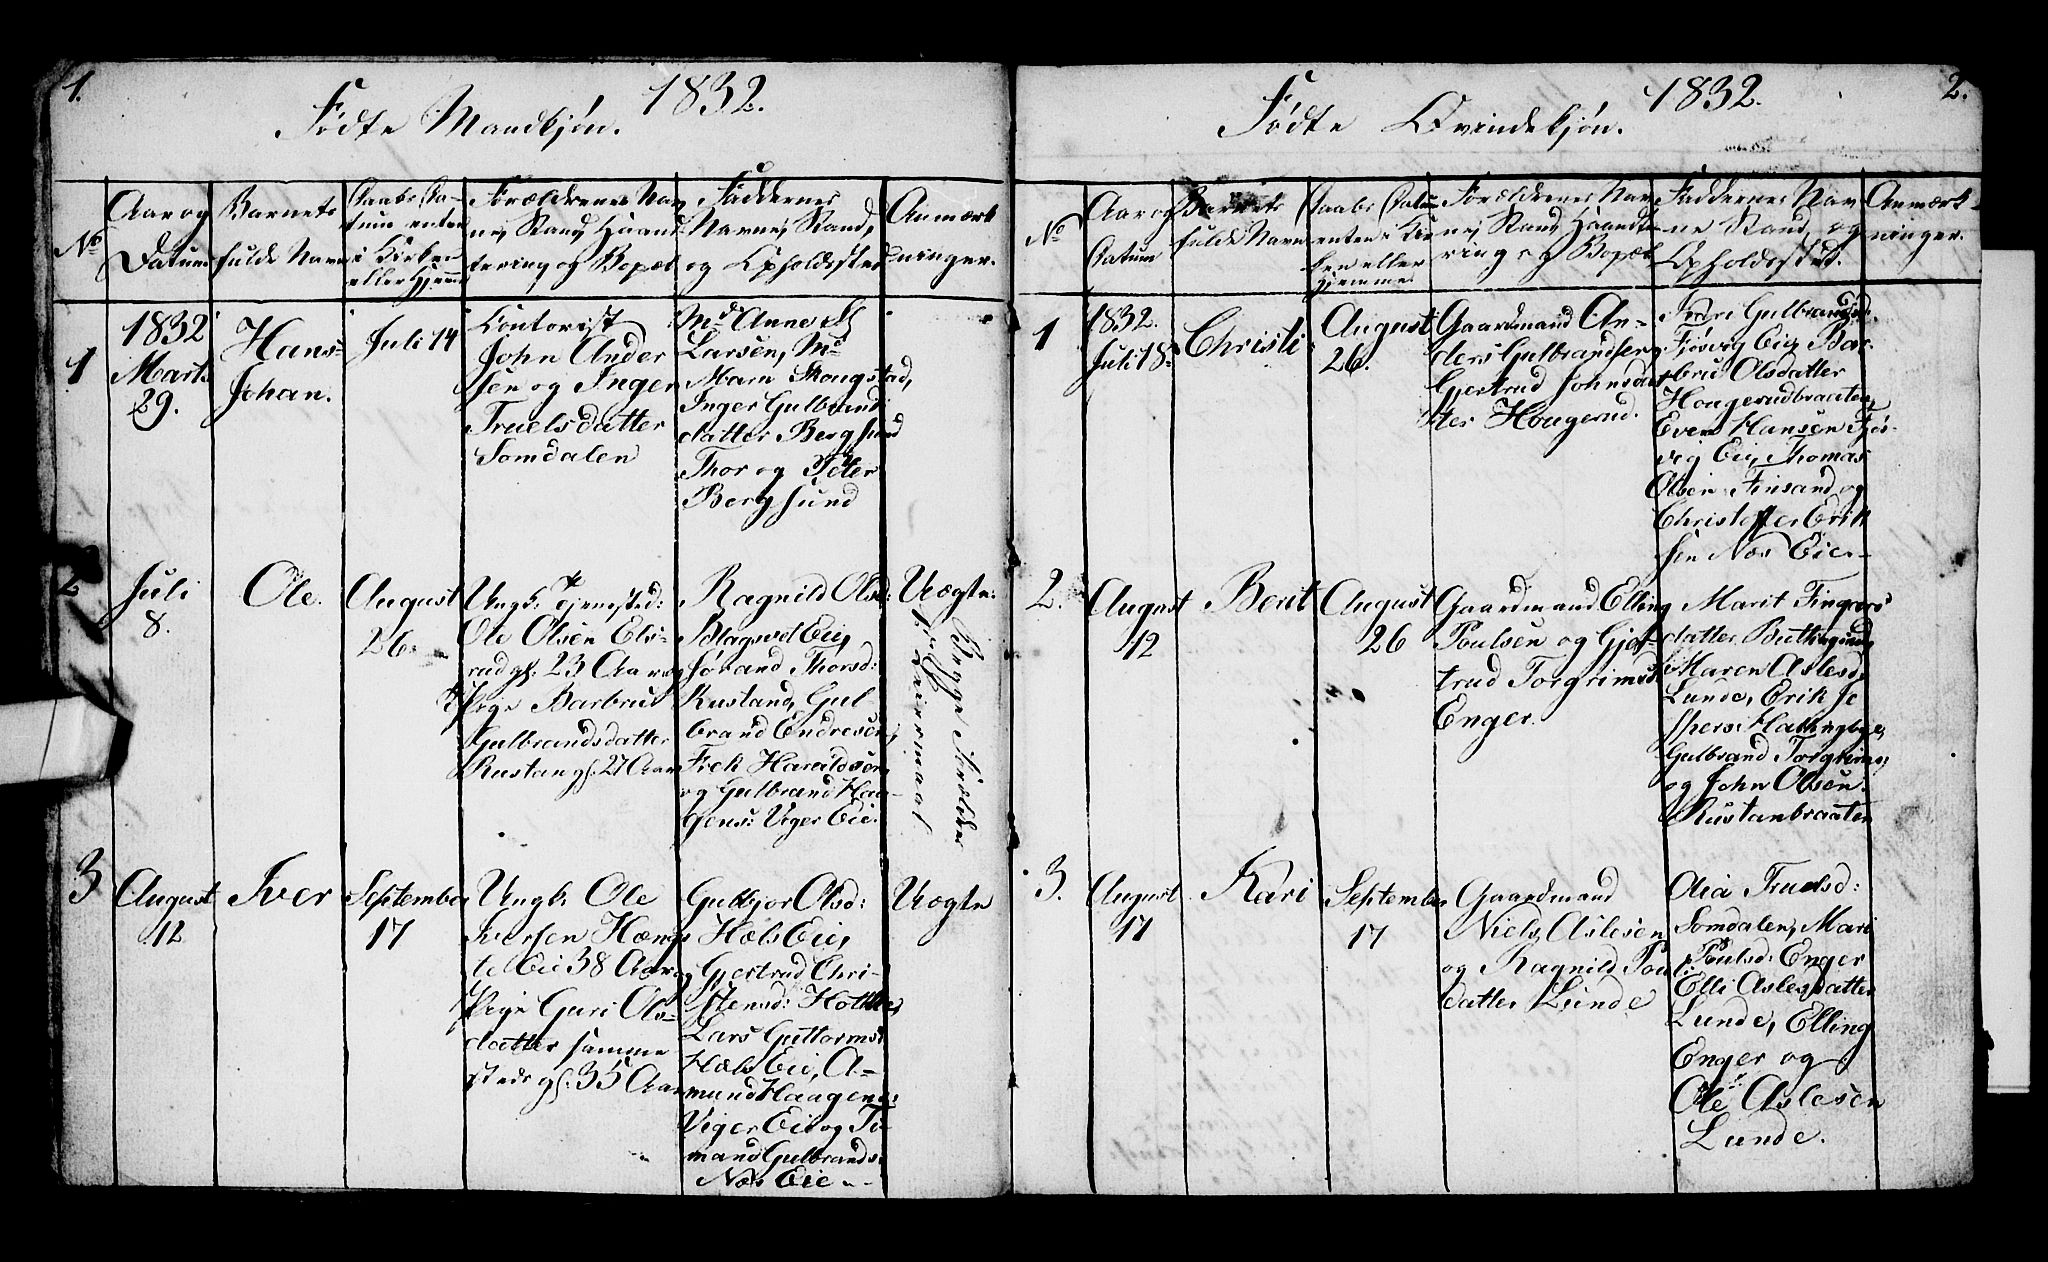 1.
Födte Mandkjön. 1832.
No
Aar og
Datum
Barnets
fulde Navn
Daabs Da-
tum enten
i Kirken
eller Hjemme
Forældrenes Nav
ne, Stand, Haand
tering og Bopæl
Faddernes
Navne, Stand,
og Opholdssted
Anmærk
ninger.
1
1832
Marts
29.
Hans
Johan.
Juli 14
Contorist
John Ander
sen og Inger
Truelsdatter
Somdalen
Md Anne
Larsen, Md
Maren Skougstad,
Inger Gulbrand
datter Bergsund
Thor og Peter
Bergsund
2
Juli
8.
Ole.
August
26.
Ungk: tjenested:
Ole Olsen Els-
rud gl: 23 Aar og
Pige Barbru
Gulbrandsdatter
Rustan gl: 27 Aar
Ragnild Olsd:
Blagsvet Eie,
Jörand Thorsd:
Rustand, Gul
brand Endresen,
Frek Haraldsen
og Gulbrand Haa-
gens: Veger Eie.
Uægte.
Begge Forældre
1ste Leiermaal
3
August
12
Iver
September
17
Ungk: Ole
Iversen Hæng
sle Eie 38 Aar og
Pige Guri Ols-
datter samme
steds gl: 35 Aar
Gulbjor Olsd:
Hols Eie,
Gjertrud Chri-
stensd: Holtke,
Lars Guttormsd
Hols Eie, A-
mund Haagens:
Veger Eie og Ti-
mand Gulbrands:
Næs Eie
Uægte
2.
Födte Qvindekjön. 1832.
No
Aar og
Datum
Barnets
fulde Navn
Daabs Datum
enten i Kir
ken eller
Hjemme
Forældrenes Nav
ne, Stand, Haandte
ring og Bopæl
Faddernes Nav
ne Stand, og
Opholdssted.
Anmærk-
ninger.
1
1832.
Juli 18.
Christi
August
26.
Gaardmand An-
ders Gulbrandsen
Gjertrud Johnsdat
ter Hougerud.
Gulbrandsd.
Fjösvig Eie, Bar-
bru Olsdatter
Hougerudbraaten,
Even Hansen Fjös-
vig Eie, Thomas
Olsen Finsand og
Christoffer Erik
sen Næs Eie.
2.
August
12
Berit
August
26
Gaardmand Elling
Poulsen og Gjer-
trud Torgrimsd
Enger.
Marit Fingers
datter
Maren Aslesd,
Lunde, Erik Je
spers: Hallingbye,
Gulbrand Torgrims:
og John Olsen
Rustanbraaten
3.
August
17
Kari
September
17
Gaardmand
Niels Aslesen
og Ragnild Pouls
datter Lunde
Aia Truelsd:
Somdalen, Mari
Poulsd: Enger
Elli Aslesdatter
Lunde, Elling
Enger og
Ole Aslesen
Lunde.